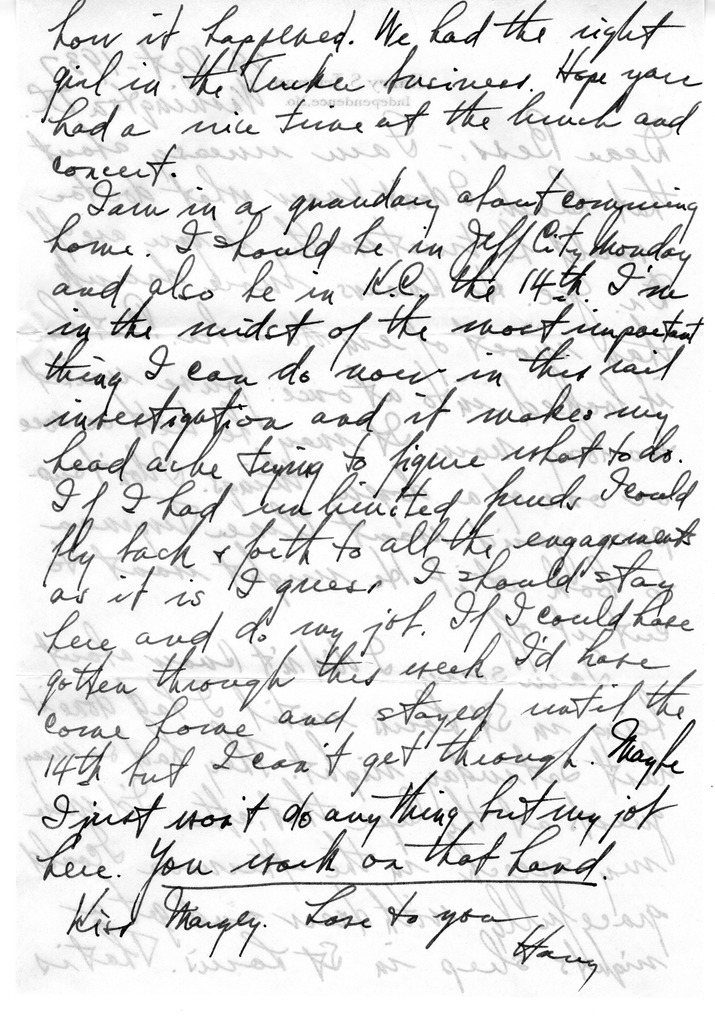 how it happened. We had the right
girl in the Tucker business. Hope you
had a nice time at the lunch and
concert.
I am in a quandary about comming
home. I should be in Jeff City Monday
and also be in K.C. the 14th. I'm
in the midst of the most important
thing I can do now in this rail
investigation and it makes my
head ache trying to figure what to do.
If I had unlimited funds I could
fly back & forth to all the engagements
as it is I guess I should stay
here and do my job. If I could have
gotten through this week I'd have
come home and stayed until the
14th but I can't get through. Maybe
I just won't do anything but my job
here. You work on that hand.
Kiss Margey. Love to you
Harry